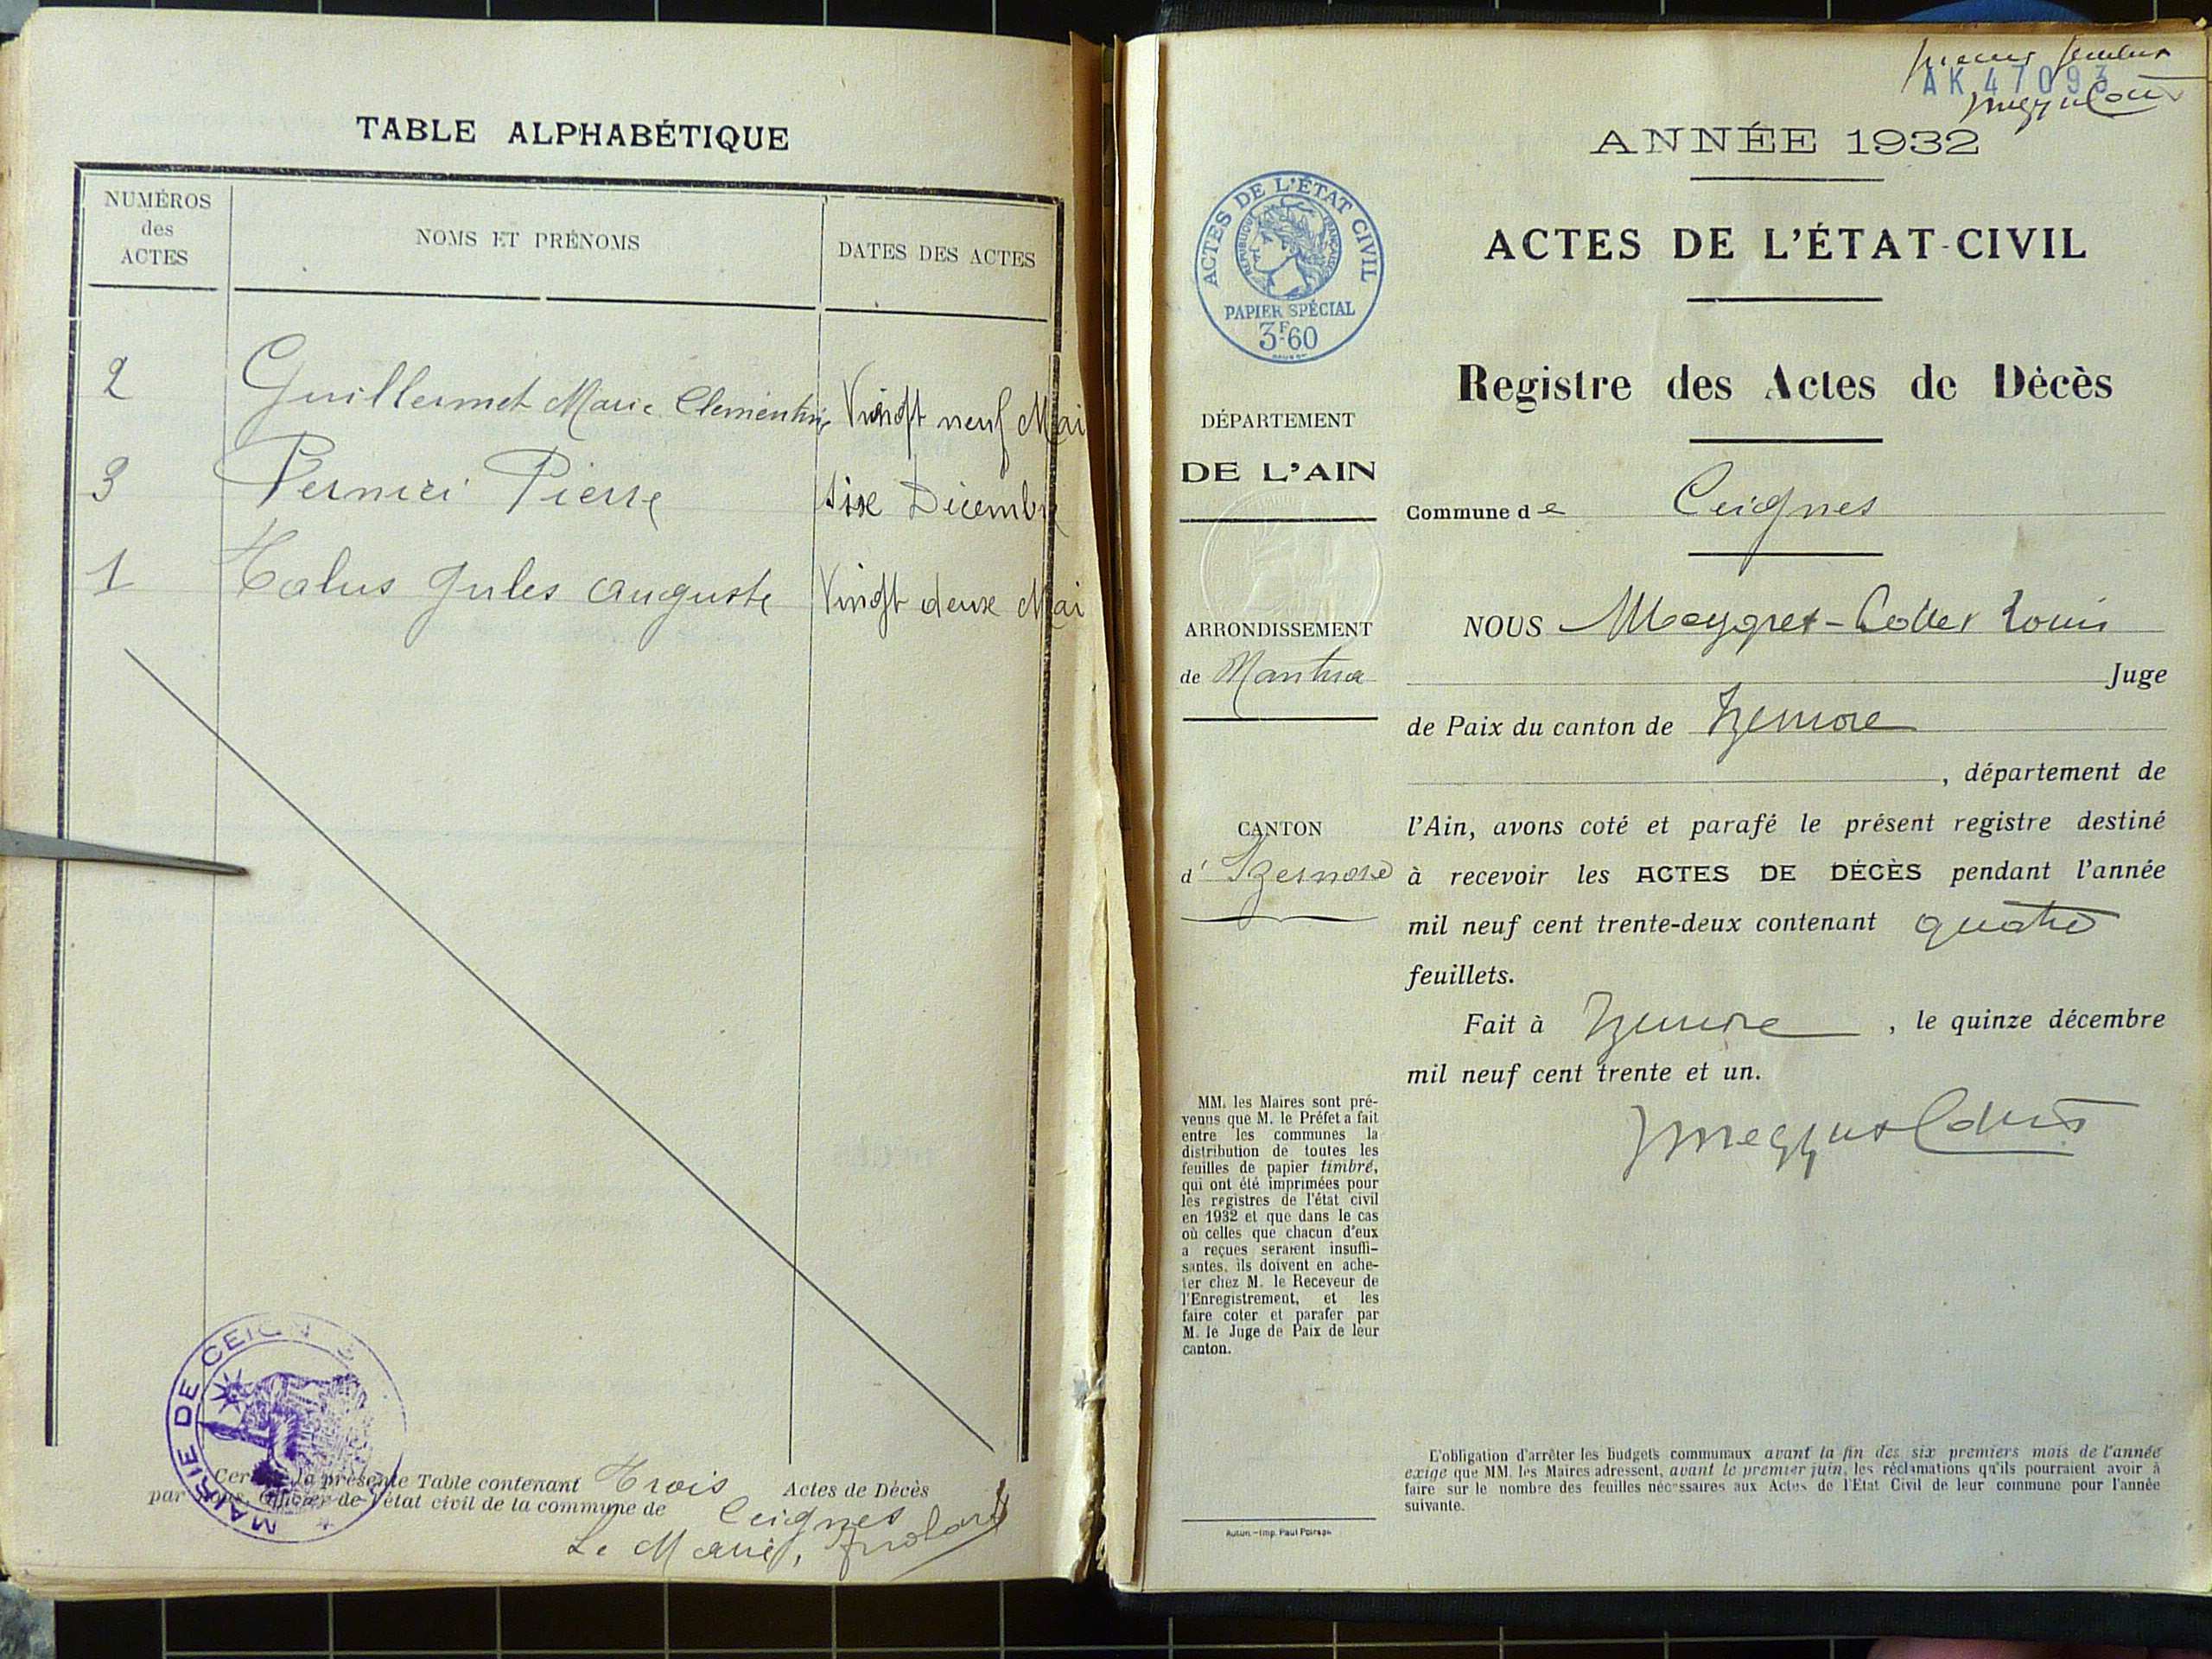 TABLE ALPHABÉTIQUE
NUMÉROS
des
ACTES
NOMS ET PRÉNOMS
DATES DES ACTES
2 Guillermet Marie Clémentine Vingt neuf Mai
3 Pernici Pierre six Décembre
1 Talus Jules Auguste Vingt deux Mai
MAIRIE DE CEIGN
Cer la présente Table contenant Trois Actes de Décès
par nous, Officier de l'état civil de la commune de Ceignes
Le Maire,
AK 47093
ANNÉE 1932
ACTES DE L'ÉTAT-CIVIL
Registre des Actes de Décès
ACTES DE L'ÉTAT CIVIL
RÉPUBLIQUE FRANÇAISE
PAPIER SPÉCIAL
3F60
DÉPARTEMENT
DE L'AIN
ARRONDISSEMENT
de Nantua
CANTON
d' Izernore
MM. les Maires sont pré-
venus que M. le Préfet a fait
entre les communes la
distribution de toutes les
feuilles de papier timbré,
qui ont été imprimées pour
les registres de l'état civil
en 1932 et que dans le cas
où celles que chacun d'eux
a reçues seraient insuffi-
santes, ils doivent en ache-
ter chez M. le Receveur de
l'Enregistrement, et les
faire coter et parafer par
M. le Juge de Paix de leur
canton.
Autun.-Imp. Paul Poirson
Commune de Ceignes
NOUS Meygret-Collet Louis
Juge
de Paix du canton de Izernore
, département de
l'Ain, avons coté et parafé le présent registre destiné
à recevoir les ACTES DE DÉCÈS pendant l'année
mil neuf cent trente-deux contenant quatre
feuillets.
Fait à Izernore, le quinze décembre
mil neuf cent trente et un.
L'obligation d'arrêter les budgets communaux avant la fin des six premiers mois de l'année
exige que MM. les Maires adressent, avant le premier juin, les réclamations qu'ils pourraient avoir à
faire sur le nombre des feuilles nécessaires aux Actes de l'Etat Civil de leur commune pour l'année
suivante.